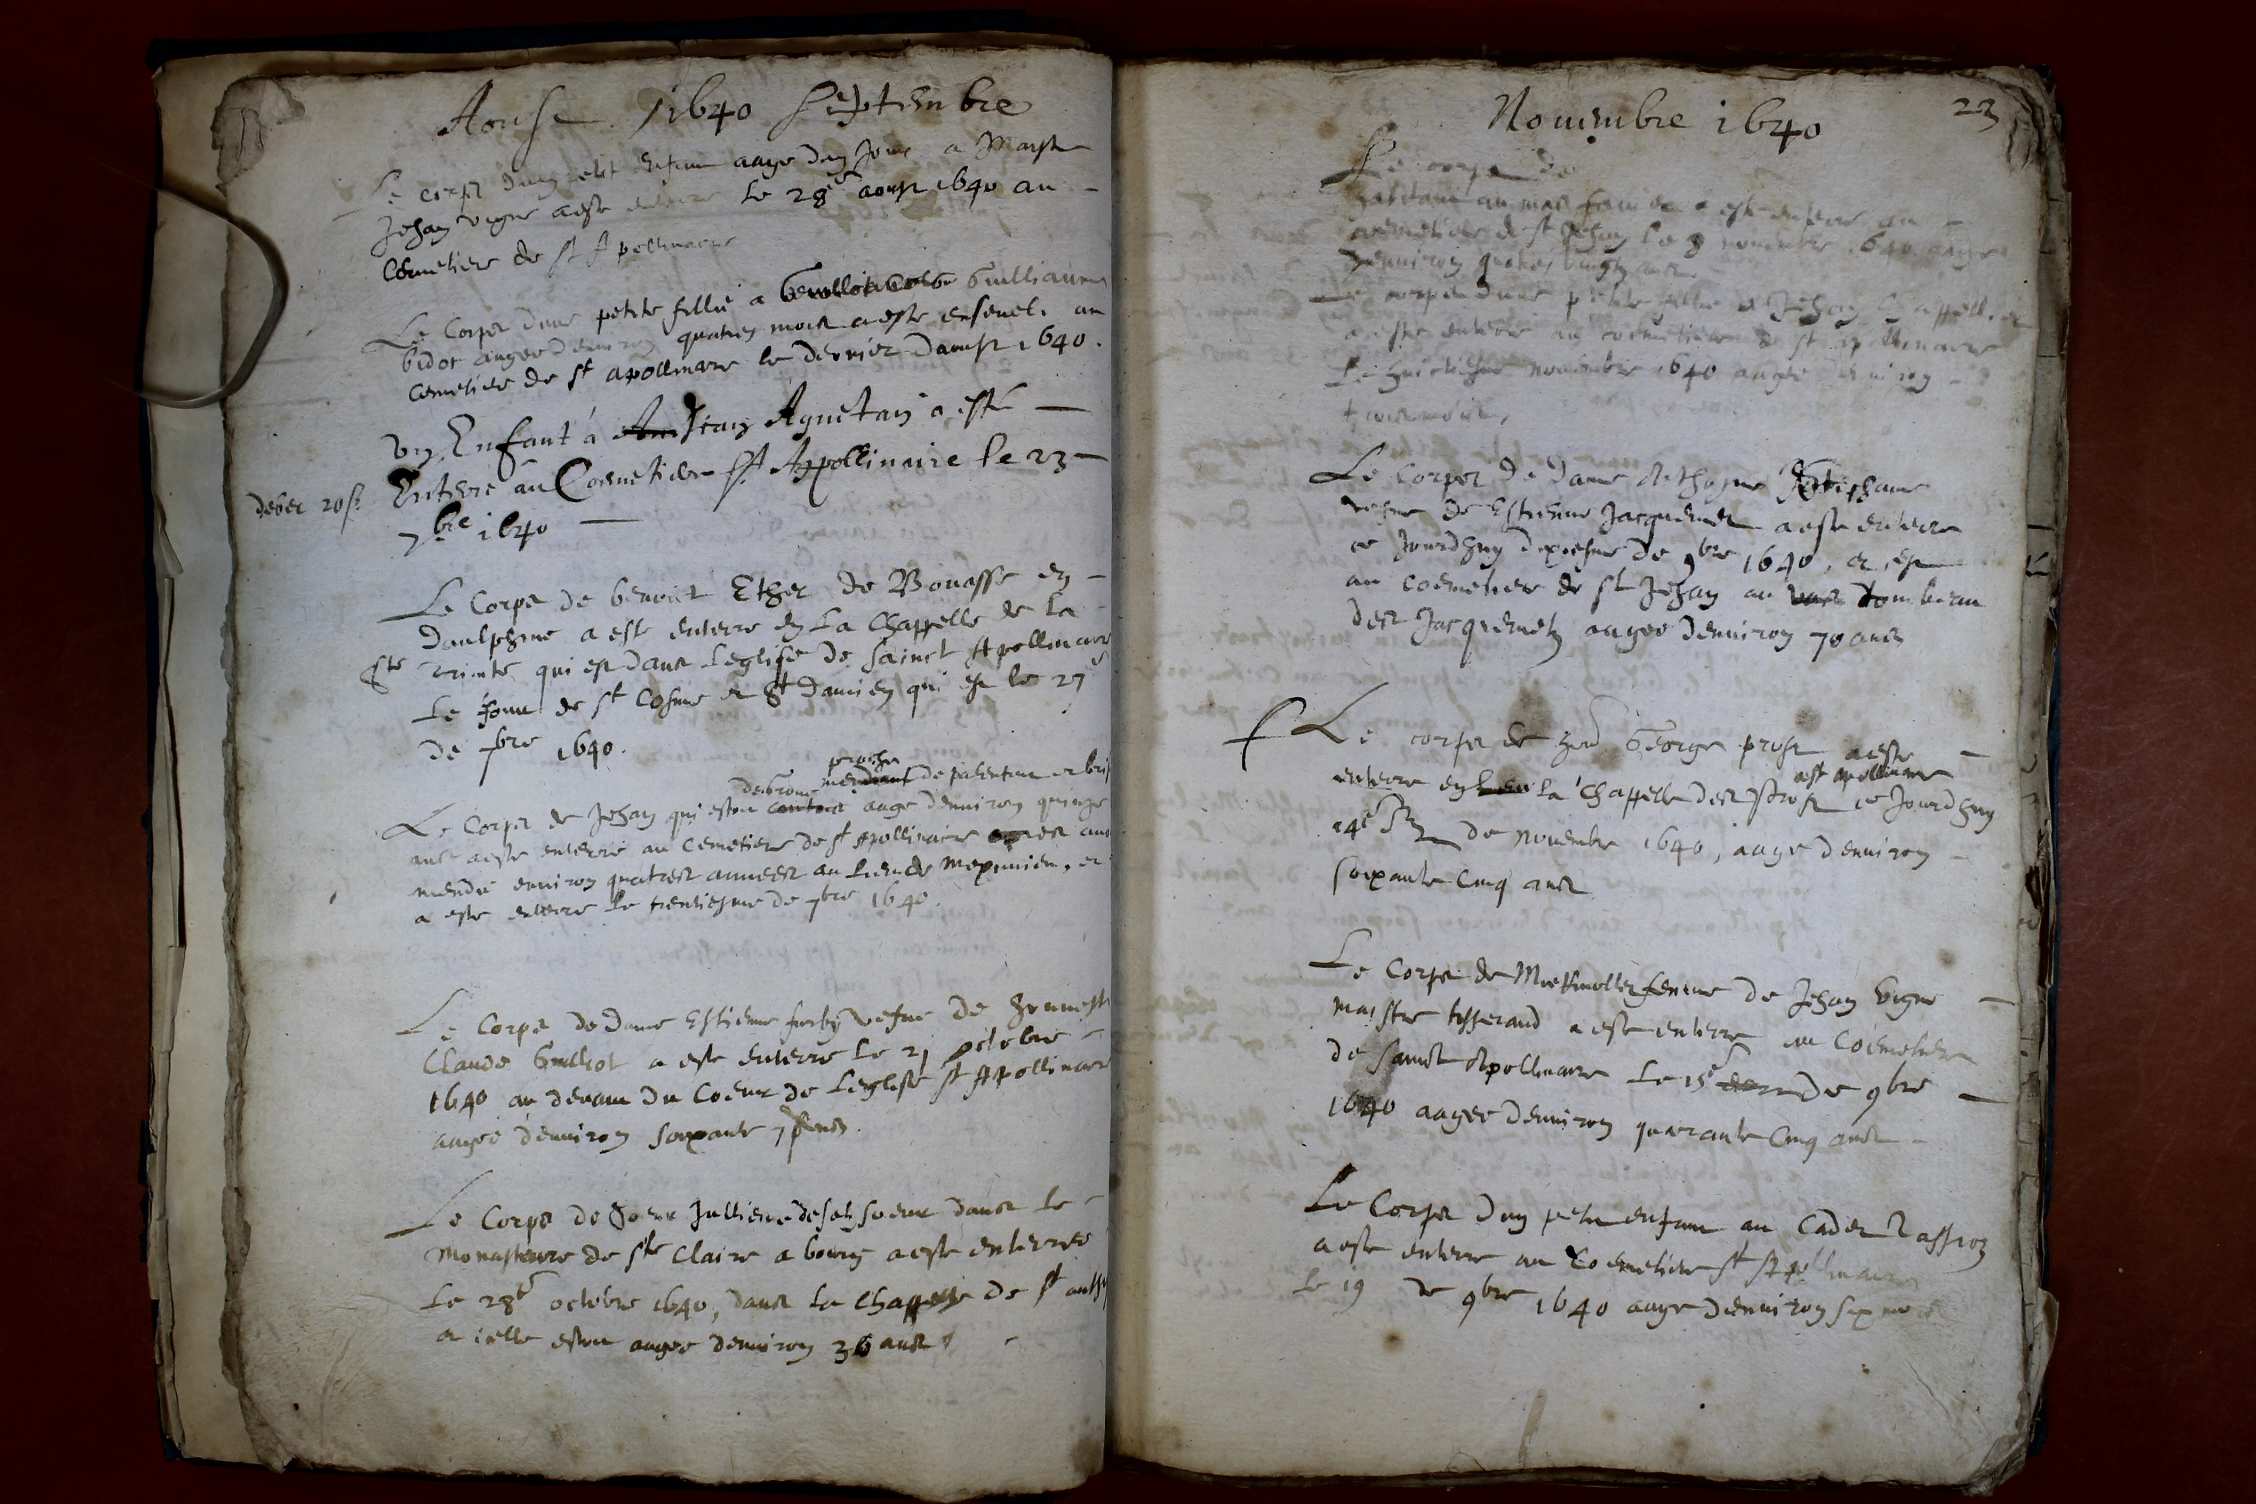 Aoust 1640 Septembre
Le corps dung petit enfant aage dun Jour a Maistre
Jehan vigne a este enterre le 28e aoust 1640 au
Cemetiere de st Apollinaire
Le Corps dune petite fillie a Guilliaume
bidot aagee denviron quatres mois a este enseveli au
Cemetiere de st apollinaire le dernier daoust 1640.
Un Enfant á Jean Agnetan a esté
Enterré au Coemetiere St. Appollinaire le 23
7bre 1640
debet 20 s.
Le Corps de benoict Ether de Bouasse en
Daulphine a este enterre en la Chappelle de la
Ste trinite qui est dans leglise de sainct Apollinaire
le jour de st Cosme et St Damien qui est le 27e
de 7bre 1640.
proche
de palentin
Le Corps de Jehan qui estoit aage denviron quinze
ans a este enterre au Cemetiere de st Apollinaire
mendie environ quatres annees au lieu de Meximieu, et
a este enterre le trentiesme de 7bre 1640.
Le Corps de Dame Estienne vefue de honneste
Claude Guilliot a este enterre le 21 octobre
1640 au devant du Coeur de leglise st Apollinaire
aagee denviron soixante ans.
Le Corps de Soeur Jullienne soeur dans le
Monastere de ste Claire a bourg a este enterree
le 28e octobre 1640, dans la Chappelle de st
et icelle estoit aagee denviron 36 ans
Novembre 1640
23
Le corps de
habitant au mas a este enterre au
coemetiere de st Jehan le 8 novembre 1640 aage
denviron quatres vingts ans
Le corps dune petite fillie a Jehan Chappell
a este enterre au coemetiere de st apollinaire
le huictiesme novembre 1640 aagee denviron
trois mois,
Le Corps de Dame Anthoyne
vefue de Estienne Jacquemet a este enterre
ce jourdhuy dixiesme de 9bre 1640, et est
au coemetiere de st Jehan au tombeau
des Jacquemetz aagee denviron 70 ans
Le corps de George prost a este
a st apollinaire
enterre en la Chappelle des prost ce Jourdhuy
14e de novembre 1640, aage denviron
soixante cinq ans
Le Corps de femme de Jehan Vigne
maistre tisserand a este enterre au Coemetiere
de sainct Apollinaire le 15e de 9bre
1640 aagee denviron quarante cinq ans
Le Corps dun petit enfant au Cadet
a este enterre au Coemetiere st Apollinaire
le 19 de 9bre 1640 aage denviron six mois